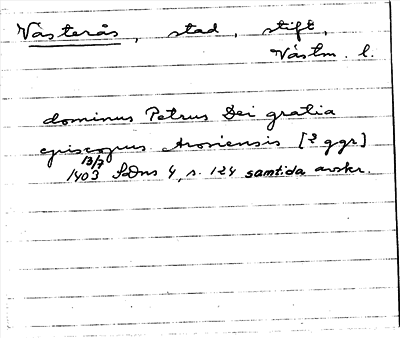 Västerås, stad, stift,
Västm. l.
dominus Petrus Dei gratia
episcopus Arosiensis [2 ggr]
13/7
1403 SDns 4, s. 124 samtida avskr.